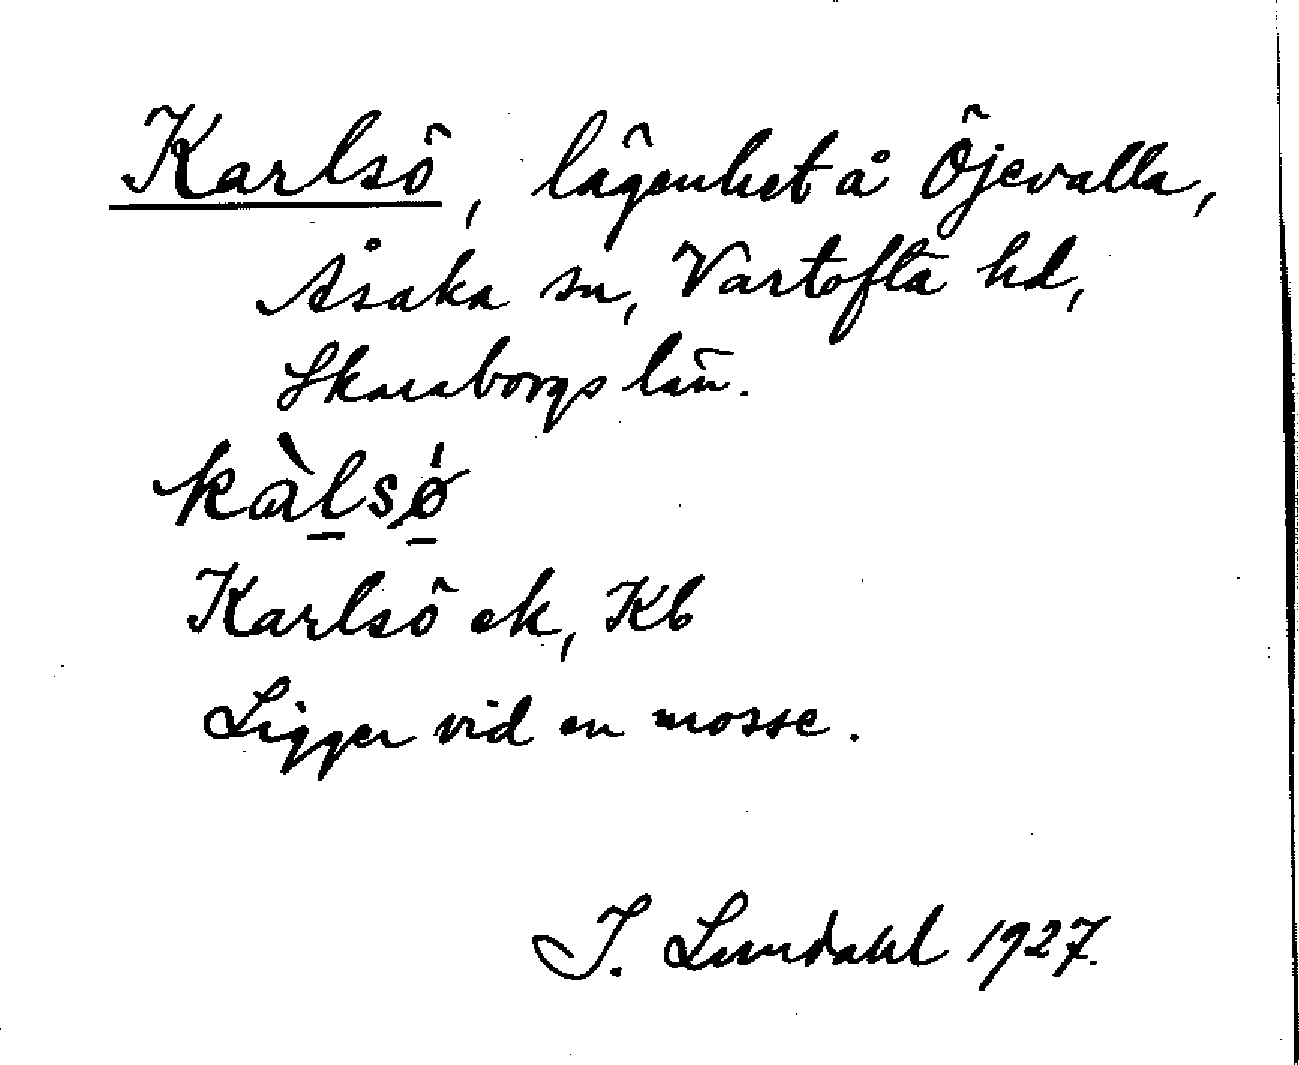 Karlsö, lägenhet å Öjevalla,
Åsaka sn, Vartofta hd,
Skaraborgs län.
kàl̠sø̠̍
Karlsö ek, Kb
Ligger vid en mosse.
I. Lundahl 1927.